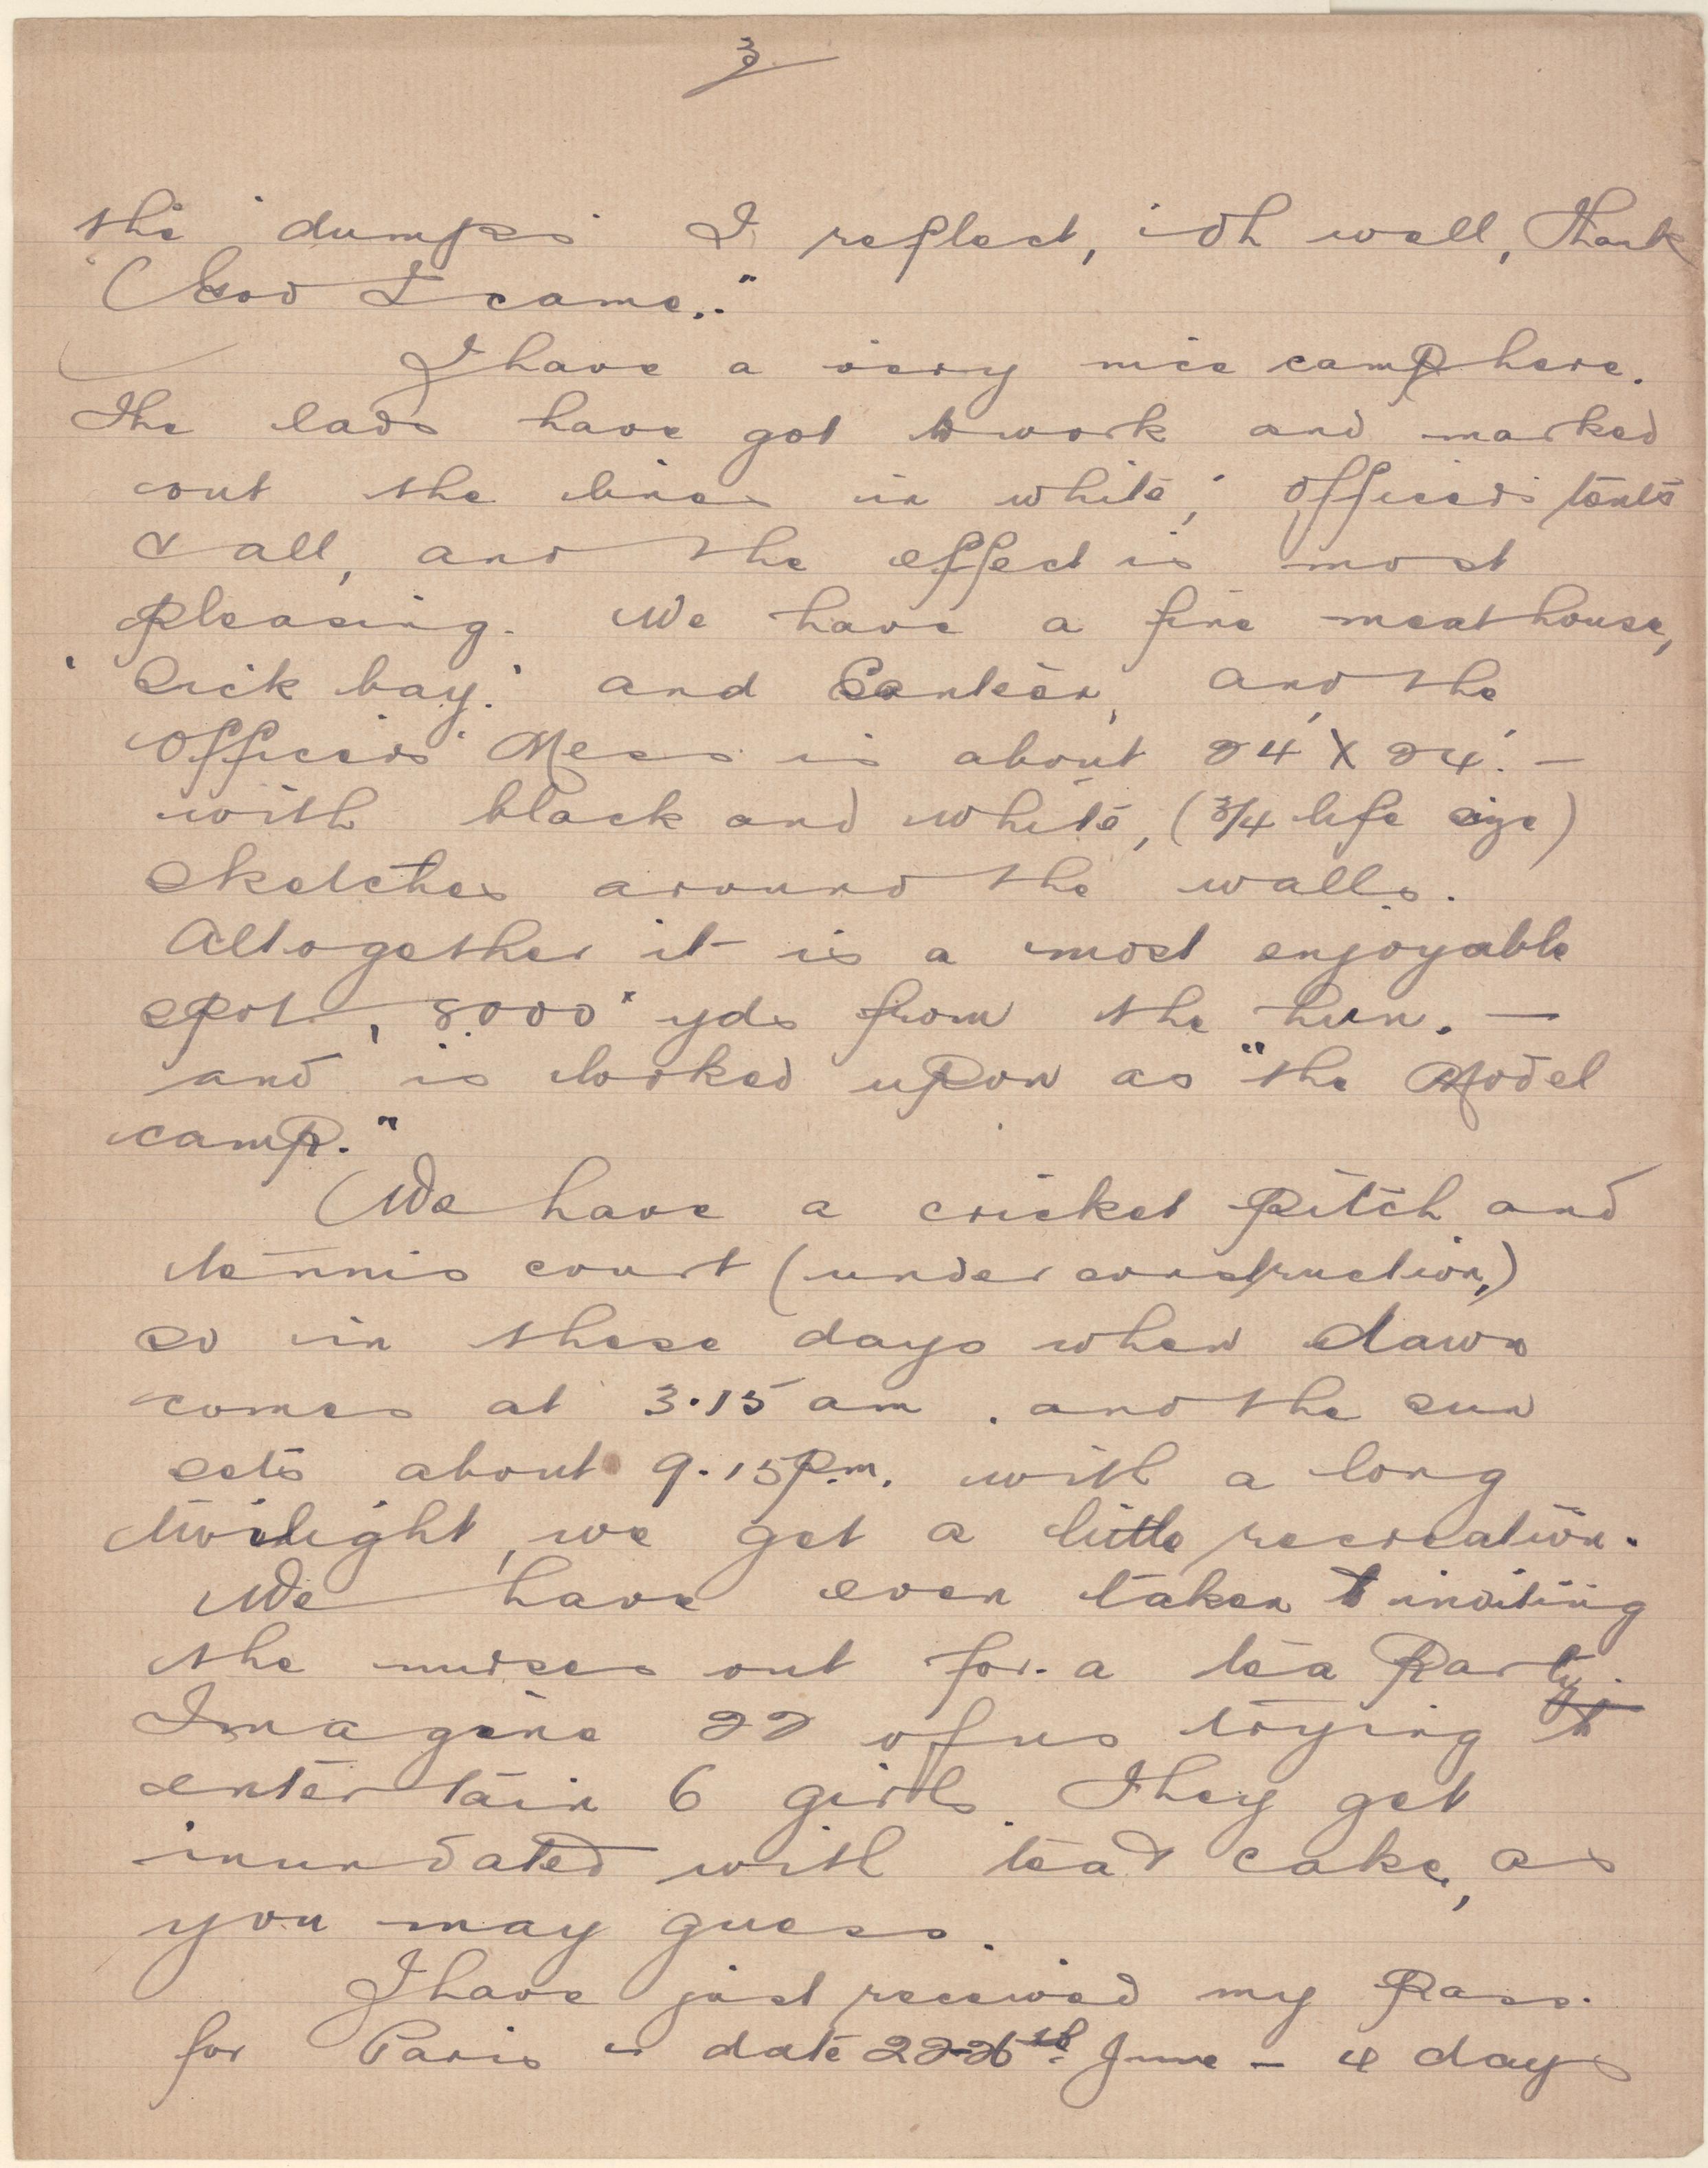 3
the 'dumps' I reflect, "oh well, Thank
God I came.."
I have a very nice camp here.
The lads have got to work and marked
out the lines in white, officers' tents
& all, and the effect is most
pleasing. We have a fine meat house,
'sick bay.' and Canteen, and the
Officers' Mess is about 24' x 24'. —
with black and white, (3/4 life size)
sketches around the walls.
Altogether it is a most enjoyable
spot, 8000 yds from the hun. —
and is looked upon as "the Model
camp."
We have a cricket pitch and
tennis court (under construction,)
so in these days when dawn
comes at 3.15 am. and the sun
sets about 9.15 p.m. with a long
twilight, we get a little recreation.
We have even taken to inviting
the nurses out for a tea party.
Imagine 22 of us trying to
entertain 6 girls. They get
inundated with tea & cake, as
you may guess.
I have just received my pass
for Paris - date 22-26th June - 4 days